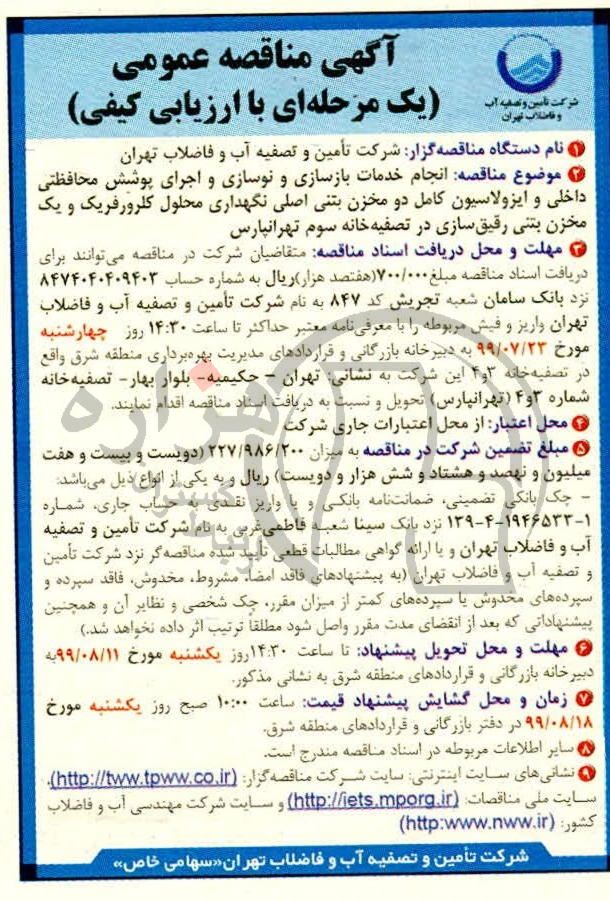 آگهی مناقصه عمومی
(یک مرحله‌ای با ارزیابی کیفی)
شرکت تأمین و تصفیه آب
و فاضلاب تهران
۱ نام دستگاه مناقصه‌گزار: شرکت تأمین و تصفیه آب و فاضلاب تهران
۲ موضوع مناقصه: انجام خدمات بازسازی و نوسازی و اجرای پوشش محافظتی
داخلی و ایزولاسیون کامل دو مخزن بتنی اصلی نگهداری محلول کلرورفریک و یک
مخزن بتنی رقیق‌سازی در تصفیه‌خانه سوم تهرانپارس
۳ مهلت و محل دریافت اسناد مناقصه: متقاضیان شرکت در مناقصه می‌توانند برای
دریافت اسناد مناقصه مبلغ ۷۰۰/۰۰۰(هفتصد هزار)ریال به شماره حساب ۸۴۷۴۰۴۰۴۰۹۴۰۳
نزد بانک سامان شعبه تجریش کد ۸۴۷ به نام شرکت تأمین و تصفیه آب و فاضلاب
تهران واریز و فیش مربوطه را با معرفی‌نامه معتبر حداکثر تا ساعت ۱۴:۳۰ روز چهارشنبه
مورخ ۹۹/۰۷/۲۳ به دبیرخانه بازرگانی و قراردادهای مدیریت بهره‌برداری منطقه شرق واقع
در تصفیه‌خانه ۳و۴ این شرکت به نشانی: تهران – حکیمیه- بلوار بهار- تصفیه‌خانه
شماره ۳و۴ (تهرانپارس) تحویل و نسبت به دریافت اسناد مناقصه اقدام نمایند.
۴ محل اعتبار: از محل اعتبارات جاری شرکت
۵ مبلغ تضمین شرکت در مناقصه به میزان ۲۲۷/۹۸۶/۲۰۰ (دویست و بیست و هفت
میلیون و نهصد و هشتاد و شش هزار و دویست) ریال و به یکی از انواع ذیل می‌باشد:
– چک بانکی تضمینی، ضمانت‌نامه بانکی و یا واریز نقدی به حساب جاری، شماره
۱-۱۹۴۶۵۳۳-۴-۱۳۹ نزد بانک سینا شعبه فاطمی‌غربی به نام شرکت تأمین و تصفیه
آب و فاضلاب تهران و یا ارائه گواهی مطالبات قطعی تأیید شده مناقصه‌گر نزد شرکت تأمین
و تصفیه آب و فاضلاب تهران (به پیشنهادهای فاقد امضا، مشروط، مخدوش، فاقد سپرده و
سپرده‌های مخدوش یا سپرده‌های کمتر از میزان مقرر، چک شخصی و نظایر آن و همچنین
پیشنهاداتی که بعد از انقضای مدت مقرر واصل شود مطلقا ترتیب اثر داده نخواهد شد.)
۶ مهلت و محل تحویل پیشنهاد: تا ساعت ۱۴:۳۰روز یکشنبه مورخ ۹۹/۰۸/۱۱به
دبیرخانه بازرگانی و قراردادهای منطقه شرق به نشانی مذکور.
۷ زمان و محل گشایش پیشنهاد قیمت: ساعت ۱۰:۰۰ صبح روز یکشنبه مورخ
۹۹/۰۸/۱۸ در دفتر بازرگانی و قراردادهای منطقه شرق.
۸ سایر اطلاعات مربوطه در اسناد مناقصه مندرج است.
۹ نشانی‌های سایت اینترنتی: سایت شرکت مناقصه‌گزار: (http://tww.tpww.co.ir)،
سایت ملی مناقصات: (http://iets.mporg.ir) و سایت شرکت مهندسی آب و فاضلاب
کشور: (http:www.nww.ir)
شرکت تأمین و تصفیه آب و فاضلاب تهران«سهامی خاص»
هزاره